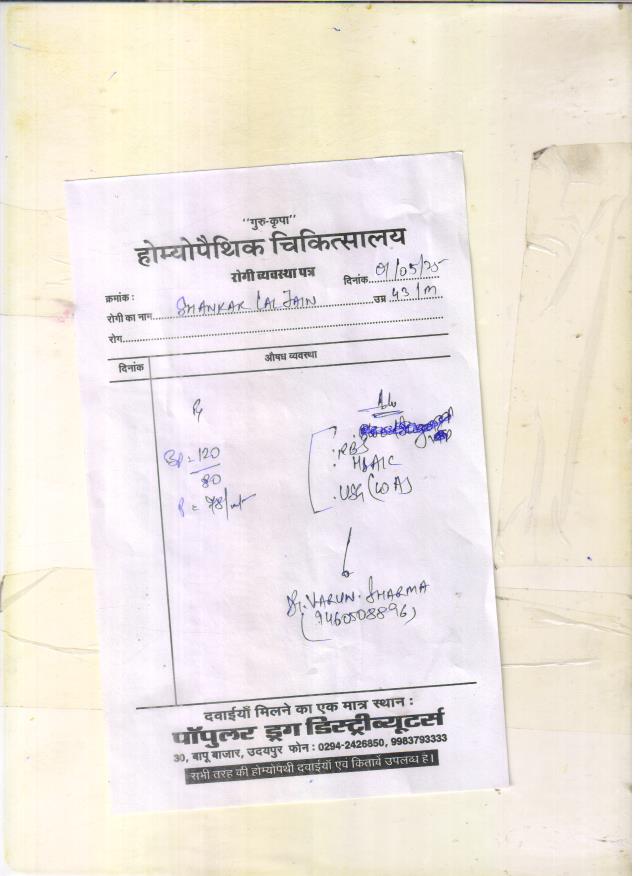 "गुरु-कृपा"
होम्योपैथिक चिकित्सालय
रोगी व्यवस्था पत्र
क्रमांक :
दिनांक 01/05/25
रोगी का नाम SHANKAR LAL JAIN उम्र 43/M
रोग
दिनांक औषध व्यवस्था
Rx
Adv
BP = 120/80
P = 78/
RBS
HbA1C
USG (WA)
Dr. VARUN SHARMA
(9460508896)
दवाईयाँ मिलने का एक मात्र स्थान :
पॉपुलर ड्रग डिस्ट्रीब्यूटर्स
30, बापू बाजार, उदयपुर फोन : 0294-2426850, 9983793333
सभी तरह की होम्योपैथी दवाईयाँ एवं किताबें उपलब्ध है।